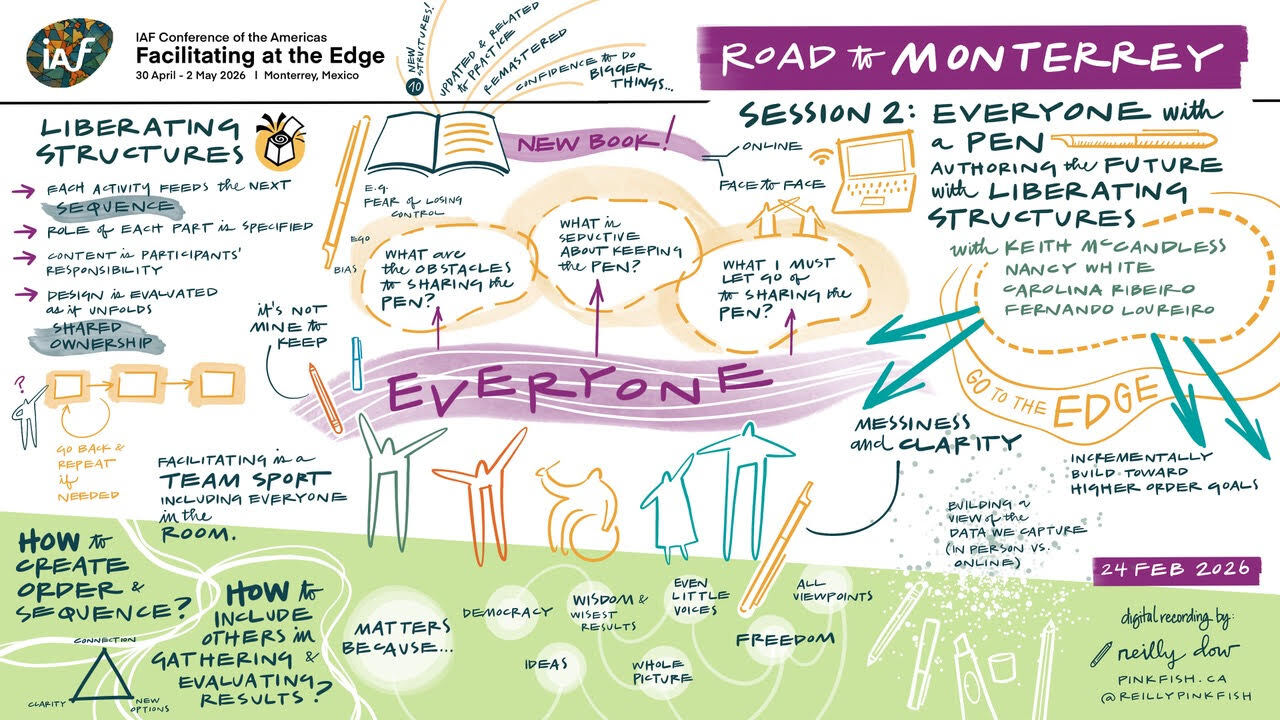 iAF
IAF Conference of the Americas
Facilitating at the Edge
30 April - 2 May 2026 | Monterrey, Mexico
10 NEW STRUCTURES!
UPDATED & RELATED
to PRACTICE
REMASTERED
CONFIDENCE to DO
BIGGER
THINGS...
ROAD to MONTERREY
LIBERATING
STRUCTURES
EACH ACTIVITY FEEDS the NEXT
SEQUENCE
ROLE of EACH PART is SPECIFIED
CONTENT is PARTICIPANTS'
RESPONSIBILITY
DESIGN is EVALUATED
as it UNFOLDS
SHARED
OWNERSHIP
NEW BOOK!
ONLINE
FACE to FACE
SESSION 2: EVERYONE with
a PEN
AUTHORING the FUTURE
with LIBERATING
STRUCTURES
with KEITH McCANDLESS
NANCY WHITE
CAROLINA RIBEIRO
FERNANDO LOUREIRO
E.G.
FEAR of LOSING
CONTROL
EGO
BIAS
WHAT are
the OBSTACLES
to SHARING the
PEN?
WHAT is
SEDUCTIVE
ABOUT KEEPING
the PEN?
WHAT I MUST
LET GO of
to SHARING the
PEN?
it's NOT
MINE to
KEEP
EVERYONE
GO TO THE EDGE
?
GO BACK &
REPEAT
if
NEEDED
FACILITATING is a
TEAM SPORT
INCLUDING EVERYONE
in the
ROOM.
MESSINESS
and CLARITY
INCREMENTALLY
BUILD TOWARD
HIGHER ORDER GOALS
BUILDING a
VIEW of the
DATA WE CAPTURE
(IN PERSON VS.
ONLINE)
HOW to
CREATE
ORDER &
SEQUENCE?
CONNECTION
CLARITY
NEW
OPTIONS
HOW to
INCLUDE
OTHERS in
GATHERING &
EVALUATING
RESULTS?
MATTERS
BECAUSE...
DEMOCRACY
IDEAS
WISDOM &
WISEST
RESULTS
WHOLE
PICTURE
EVEN
LITTLE
VOICES
FREEDOM
ALL
VIEWPOINTS
24 FEB 2026
digital recording by:
reilly dow
PINKFISH.CA
@REILLYPINKFISH